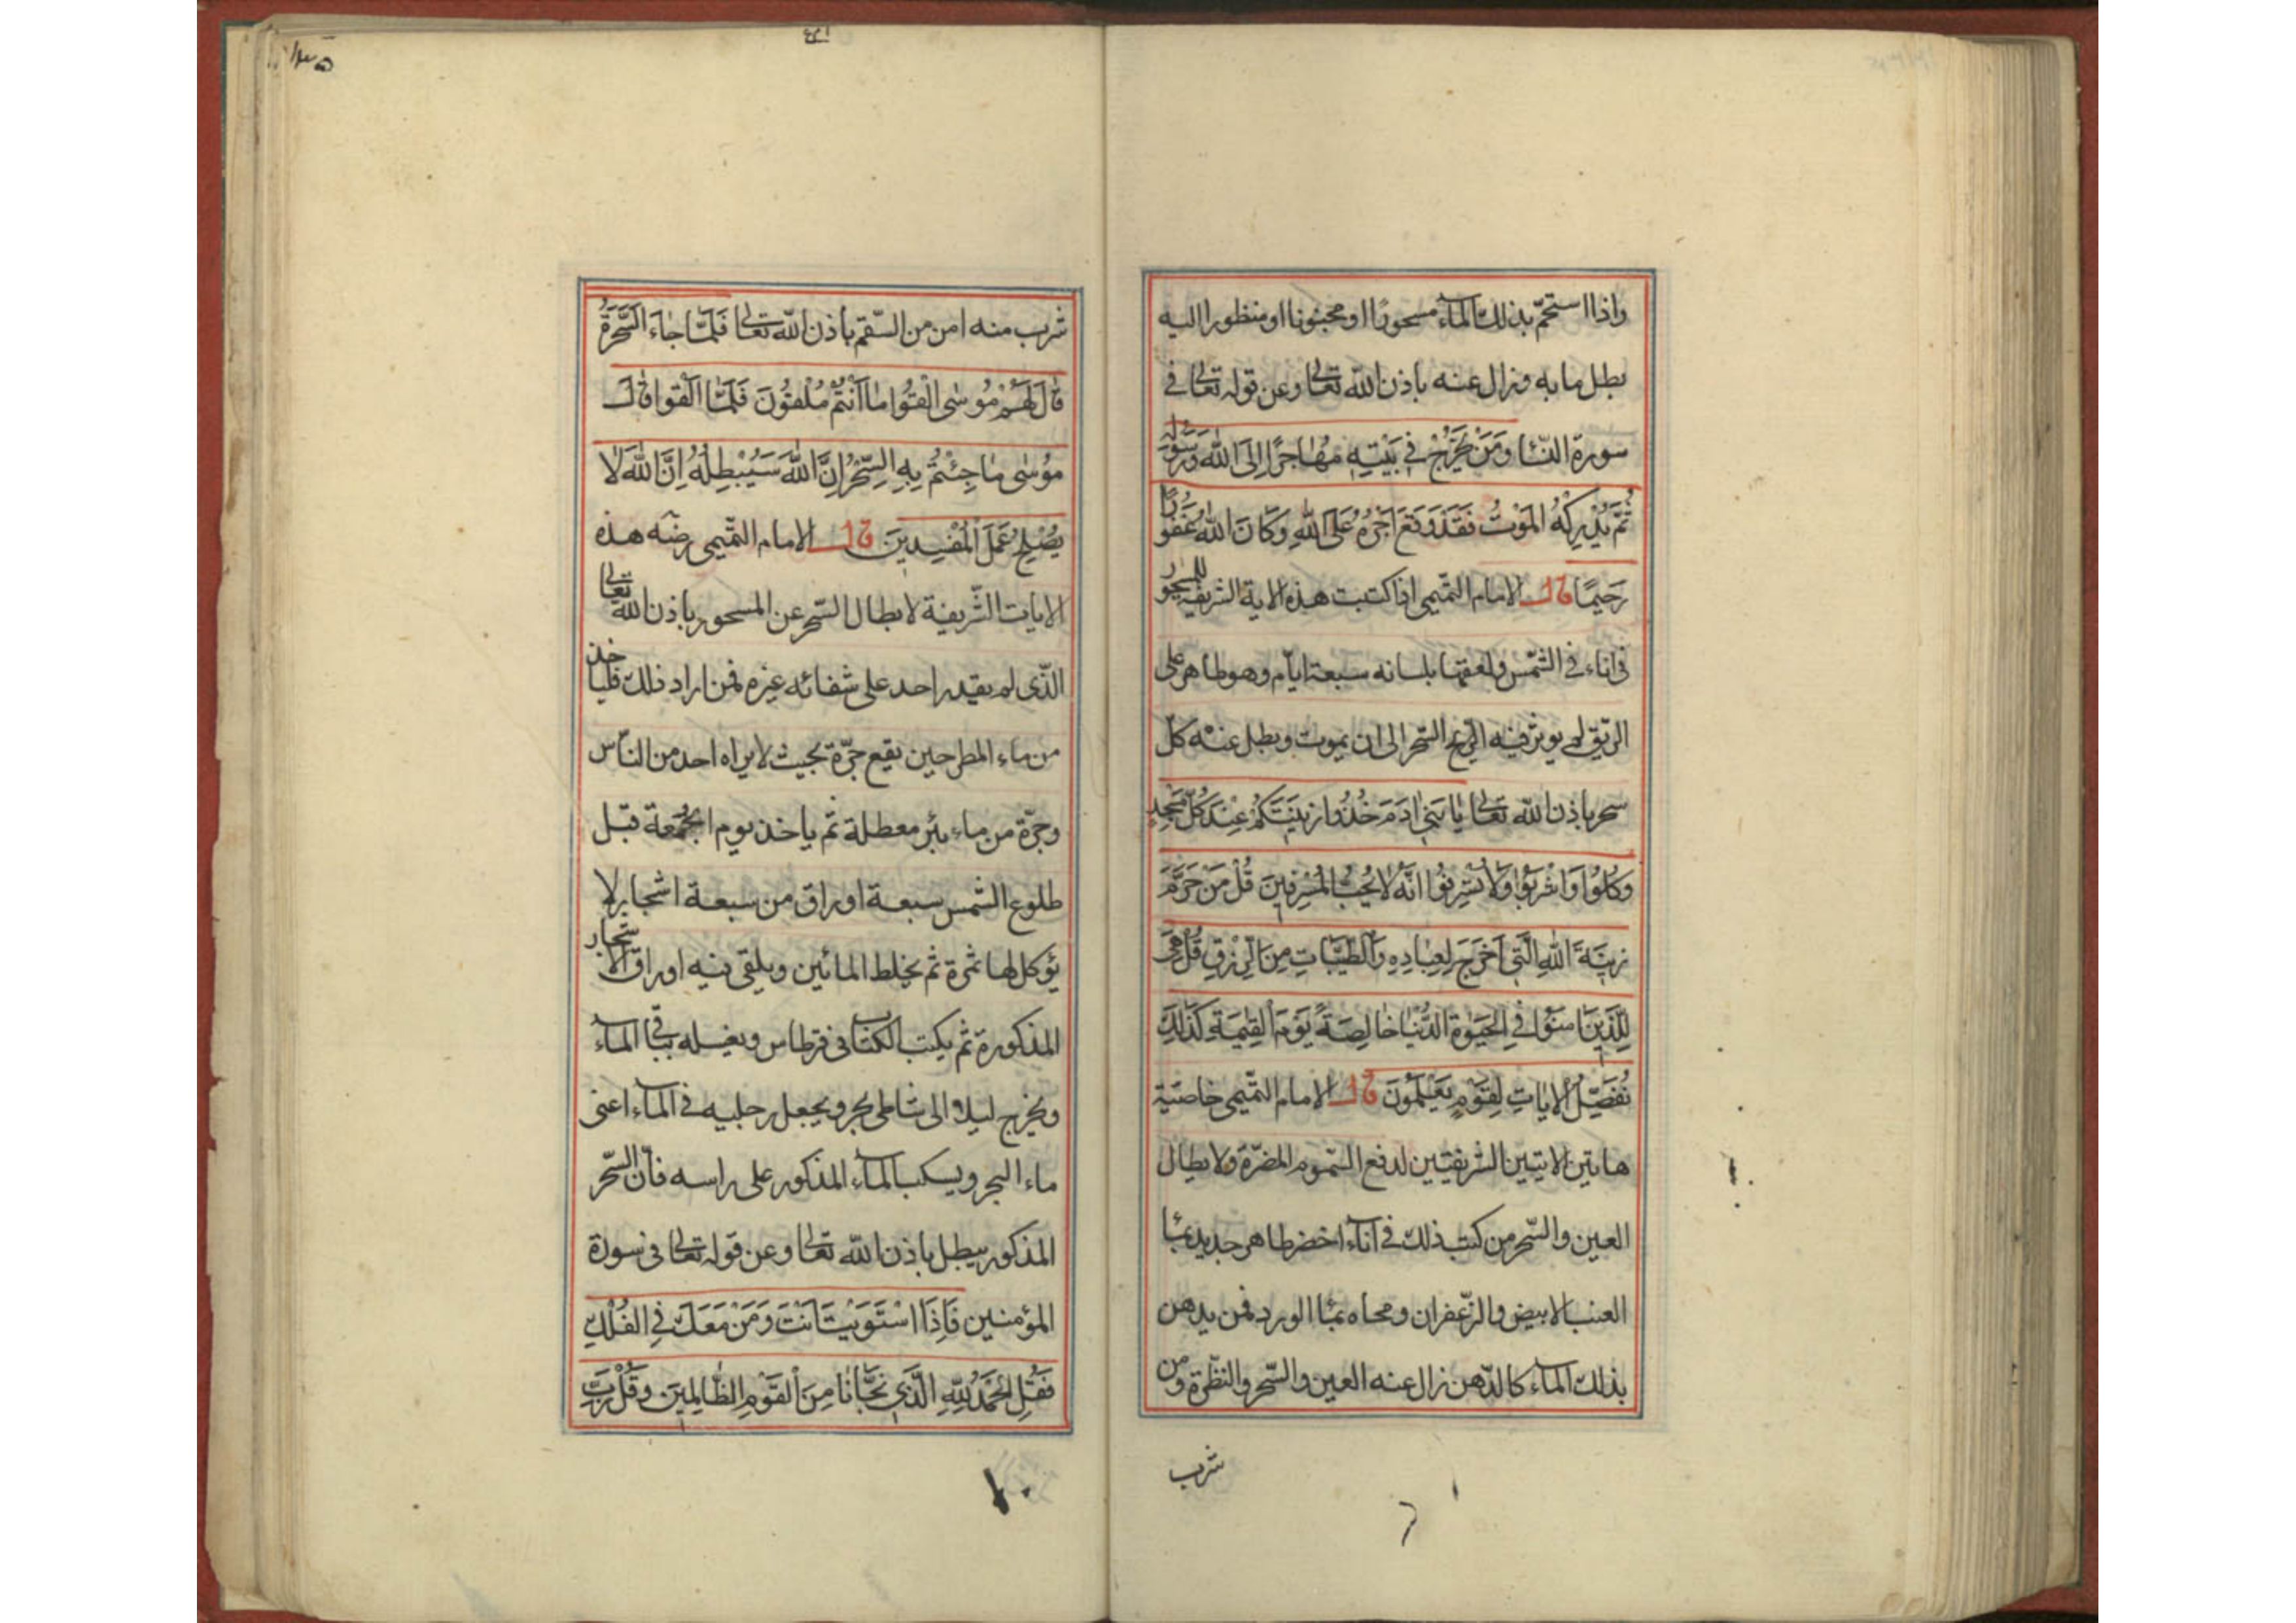 واذا استحمّ بذلك الماء مسحورًا او مجنونا او منظورا اليه
بطل ما به وزال عنه باذن الله تعالى وعن قوله تعالى في
سورة النسا وَمَنْ يَخْرُجْ فِي بَيْتِهِ مُهَاجِرًا اِلَى اللّٰهِ وَرَسُوله
ثُمَّ يُدْرِكْهُ المَوْتُ فَقَدْ وَقَعَ اَجْرُهُ عَلَى اللّٰهِ وَكَانَ اللّٰهُ غَفُورًا
رَحِيمًا قال الامام التميمى اذا كتبت هذه الاية الشريفة للمسحور
فى اناء فى الشمس ولعقها بلسانه سبعة ايام وهو طاهر على
الريق لم يوثر فيه السحر الى ان يموت وبطل عنه كل
سحر باذن الله تعالى يَا بَنِي اٰدَمَ خُذُوا زِينَتَكُمْ عِنْدَ كُلِّ مَسْجِدٍ
وَكُلُوا وَاشْرَبُوا وَلَا تُسْرِفُوا اِنَّهُ لَا يُحِبُّ المُسْرِفِينَ قُلْ مَنْ حَرَّمَ
زِينَةَ اللّٰهِ الَّتِي اَخْرَجَ لِعِبَادِهِ وَالطَّيِّبَاتِ مِنَ الرِّزْقِ قُلْ هِيَ
لِلَّذِينَ اٰمَنُوا فِي الحَيٰوةِ الدُّنْيَا خَالِصَةً يَوْمَ القِيٰمَةِ كَذٰلِكَ
نُفَصِّلُ الاٰيَاتِ لِقَوْمٍ يَعْلَمُونَ قال الامام التميمى خاصية
هاتين الايتين الشريفتين لدفع السّموم المضرّة ولابطال
العين والسّحر من كتب ذلك فى اناء اخضر طاهر جديد بماء
العنب الابيض والزّعفران ومحاه بماء الورد فمن يدهن
بذلك الماء كالدّهن زال عنه العين والسّحر والنظرة ومن
شرب
شرب منه امن من السّقم باذن الله تعالى فَلَمَّا جَاءَ السَّحَرَةُ
قَالَ لَهُمْ مُوسٰى اَلْقُوا مَا اَنْتُمْ مُلْقُونَ فَلَمَّا اَلْقَوا قَالَ
مُوسٰى مَا جِئْتُمْ بِهِ السِّحْرُ اِنَّ اللّٰهَ سَيُبْطِلُهُ اِنَّ اللّٰهَ لَا
يُصْلِحُ عَمَلَ المُفْسِدِينَ قال الامام التّميمى رضه هذه
الايات الشّريفة لابطال السّحر عن المسحور باذن الله تعالى
الّذى لم يقدر احد على شفائه غيره فمن اراد ذلك فلياخذ
من ماء المطر حين يقع جرّة بحيث لا يراه احد من النّاس
وجرّة من ماء بئر معطلة ثم ياخذ يوم الجمعة قبل
طلوع الشمس سبعة اوراق من سبعة اشجار لا
يؤكل لها ثمرة ثم يخلط المائين ويلقى فيه اوراق الاشجار
المذكورة ثم يكتب الكتاب فى قرطاس ويغسله الماء
ويخرج ليلا الى شاطى بحر ويجعل رجليه فى الماء اعنى
ماء البحر ويسكب الماء المذكور على راسه فانّ السّحر
المذكور يبطل باذن الله تعالى وعن قوله تعالى فى سورة
المؤمنين فَاِذَا اسْتَوَيْتَ اَنْتَ وَمَنْ مَعَكَ فِي الفُلْكِ
فَقُلِ الحَمْدُ لِلّٰهِ الَّذِي نَجَّانَا مِنَ القَوْمِ الظَّالِمِينَ وَقُلْ رَبِّ